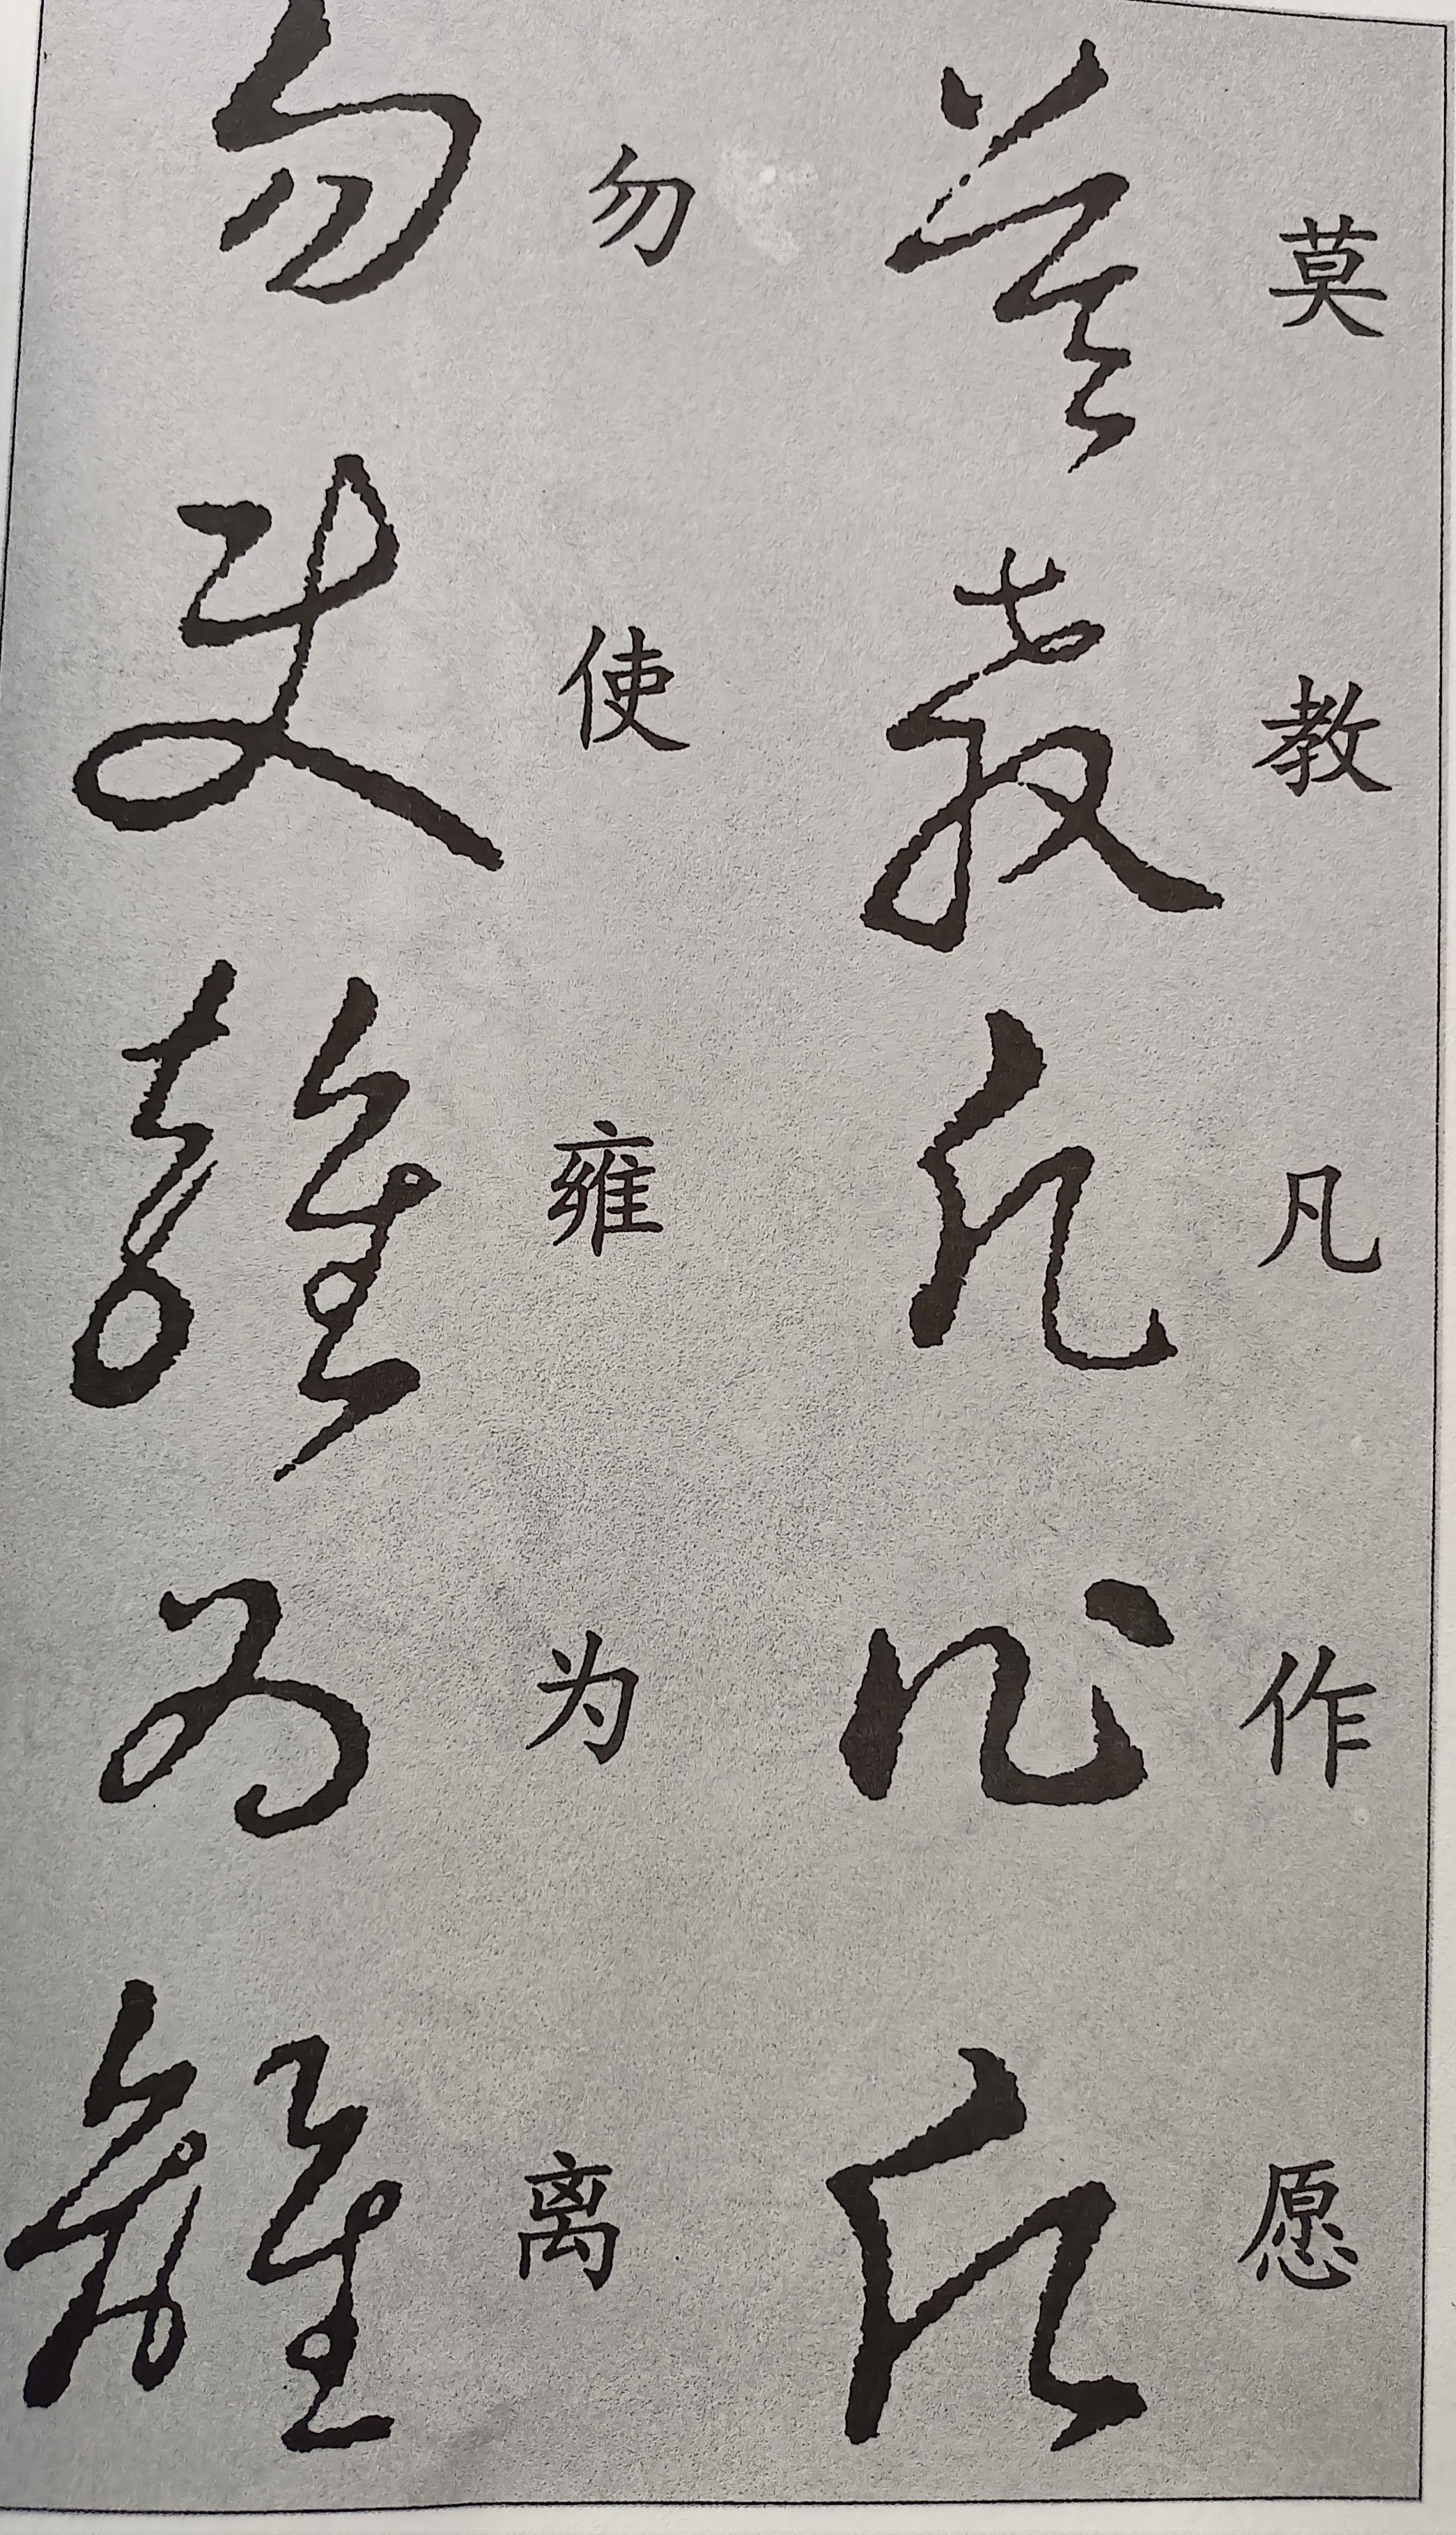 莫教凡作愿
勿使雍为离